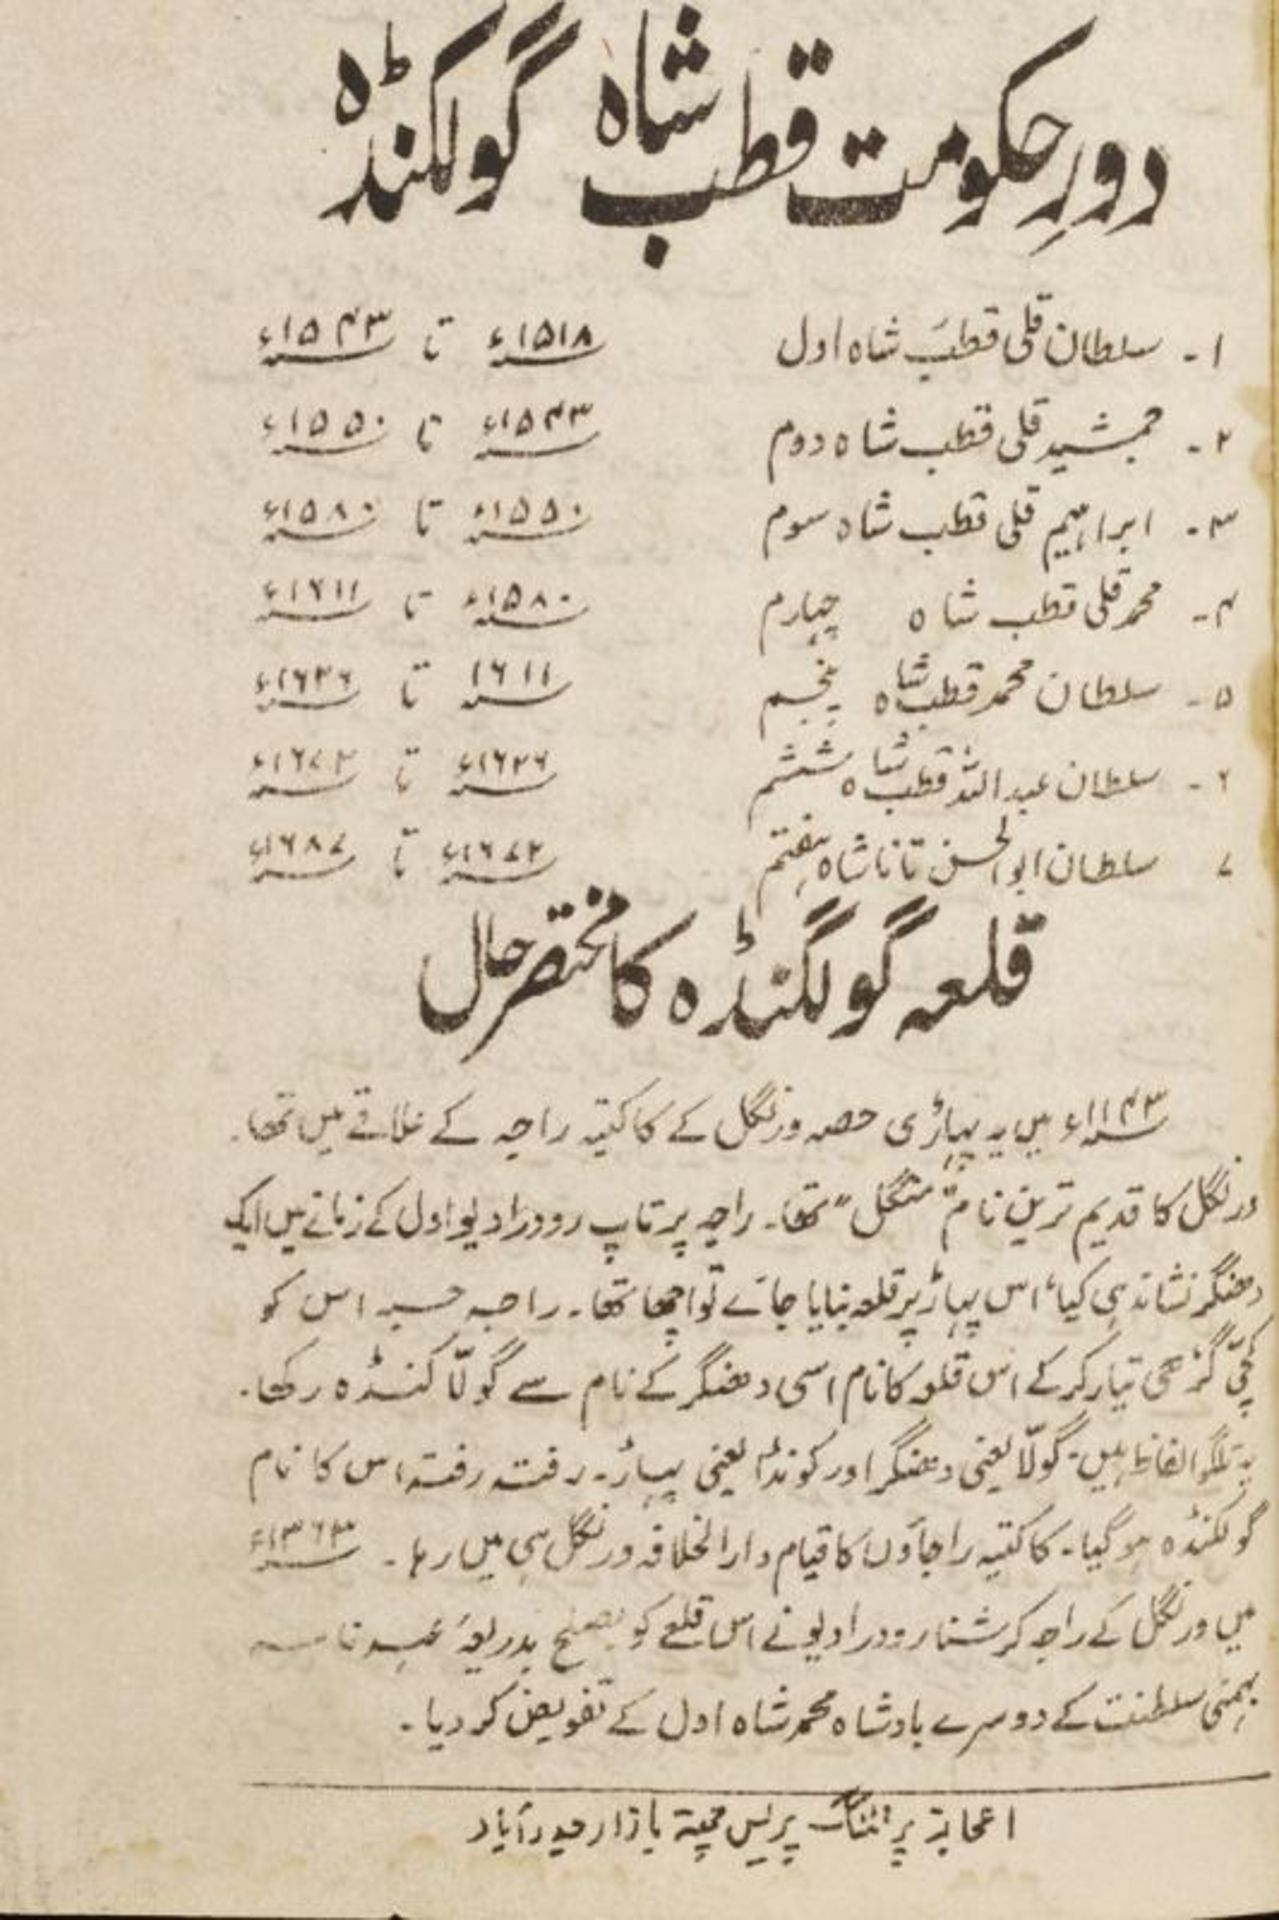 دورِ حکومت قطب شاہ گولکنڈہ
۱- سلطان قلی قطب شاہ اول ۱۵۱۸ء تا ۱۵۴۳ء
۲- جمشید قلی قطب شاہ دوم ۱۵۴۳ء تا ۱۵۵۰ء
۳- ابراہیم قلی قطب شاہ سوم ۱۵۵۰ء تا ۱۵۸۰ء
۴- محمد قلی قطب شاہ چہارم ۱۵۸۰ء تا ۱۶۱۱ء
۵- سلطان محمد قطب شاہ پنجم ۱۶۱۱ تا ۱۶۲۶ء
۶- سلطان عبداللہ قطب شاہ ششم ۱۶۲۶ء تا ۱۶۷۲ء
۷ سلطان ابوالحسن تانا شاہ ہفتم ۱۶۷۲ء تا ۱۶۸۷ء
قلعہ گولگنڈہ کا مختصر حال
۱۱۴۳ء میں یہ پہاڑی حصہ ورنگل کے کاکتیہ راجہ کے علاقے میں تھا۔
ورنگل کا قدیم ترین نام "منگل" تھا۔ راجہ پرتاپ رودرا دیو اول کے زمانے میں ایک
دھنگر نشاندہی کیا، اس پہاڑ پر قلعہ بنایا جائے تو اچھا تھا۔ راجہ اس کو
کچّی گڑھی تیار کر کے اس قلعہ کا نام اسی دھنگر کے نام سے گولّا کنڈہ رکھا۔
یہ تلگو الفاظ ہیں۔ گولّا یعنی دھنگر اور کونڈا یعنی پہاڑ۔ رفتہ رفتہ اس کا نام
گولکنڈہ ہو گیا۔ کاکتیہ راجاؤں کا قیام دارالخلافہ ورنگل ہی میں رہا۔ ۱۳۶۳ء
میں ورنگل کے راجہ کرشنا رودرا دیو نے اس قلعے کو بذریعۂ عہد نامہ
بہمنی سلطنت کے دوسرے بادشاہ محمد شاہ اول کے تفویض کر دیا۔
اعجاز پرنٹنگ پریس چھتہ بازار حیدرآباد